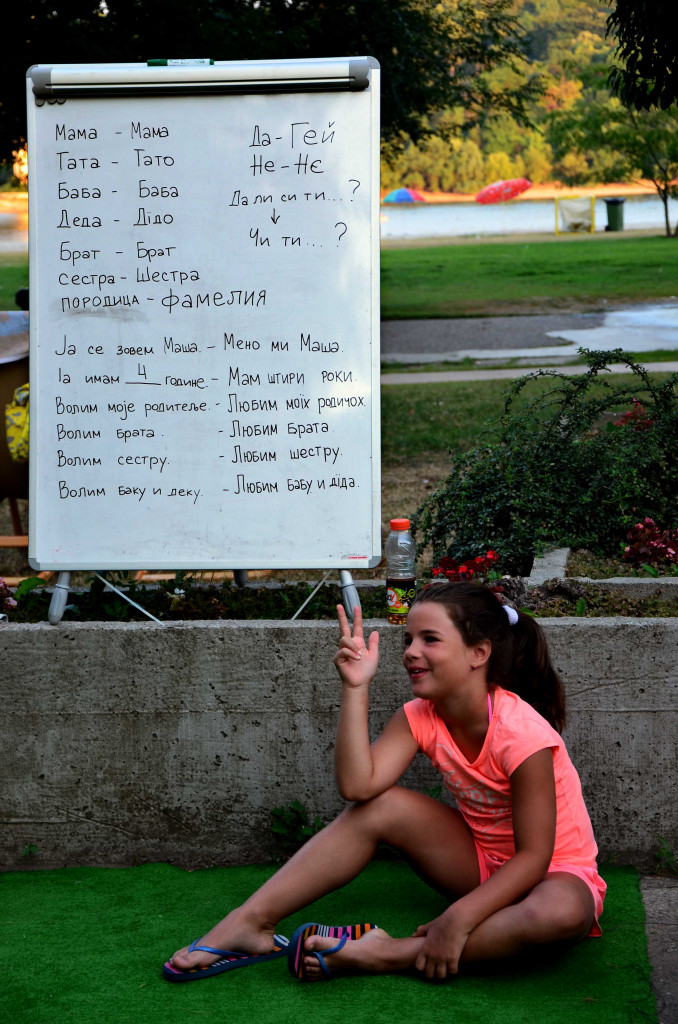 Мама - Мама
Тата - Тато
Баба - Баба
Деда - Дїдо
Брат - Брат
сестра - Шестра
породица - фамелия
Да - Гей
Не - Нє
Да ли си ти...?
↓
Чи ти....?
Ја се зовем Маша. - Мено ми Маша.
Ја имам 4 године. - Мам штири роки.
Волим моје родитеље. - Любим моїх родичох.
Волим брата. - Любим брата.
Волим сестру. - Любим шестру.
Волим баку и деку. - Любим бабу и дїда.